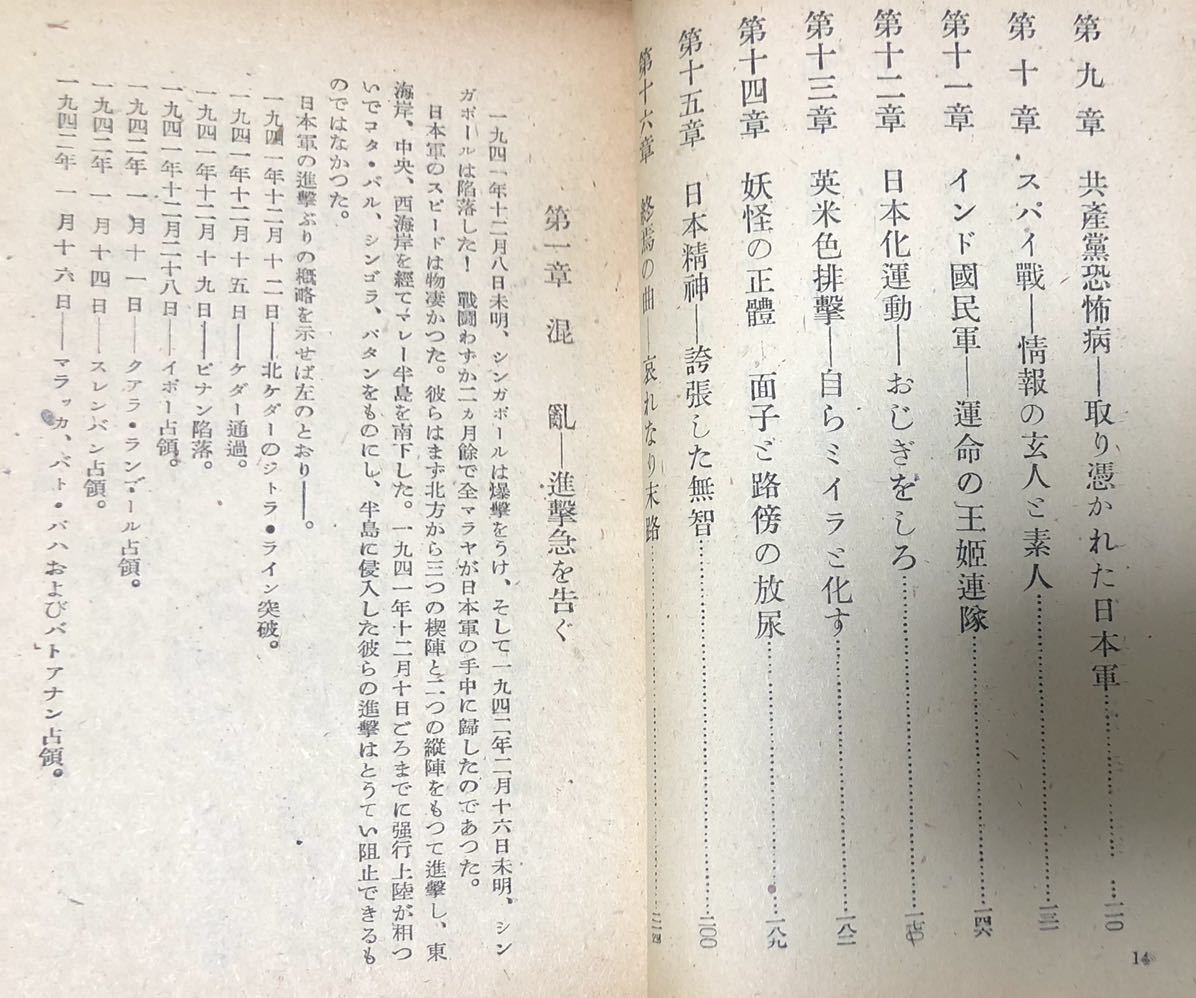 第九章 共產黨恐怖病——取り憑かれた日本軍……一一〇
第十章 スパイ戰——情報の玄人と素人……一三一
第十一章 インド國民軍——運命の王姬連隊……一四六
第十二章 日本化運動——おじぎをしろ……一七〇
第十三章 英米色排擊——自らミイラと化す……一八二
第十四章 妖怪の正體——面子と路傍の放尿……一八九
第十五章 日本精神——誇張した無智……二〇〇
第十六章 終焉の曲——哀れなり末路……二一四
14
第一章 混亂——進擊急を告ぐ
一九四一年十二月八日未明、シンガポールは爆擊をうけ、そして一九四二年二月十六日未明、シン
ガポールは陷落した! 戰鬪わずか二ヵ月餘で全マラヤが日本軍の手中に歸したのであつた。
日本軍のスピードは物凄かつた。彼らはまず北方から三つの楔陣と二つの縱陣をもつて進擊し、東
海岸、中央、西海岸を經てマレー半島を南下した。一九四一年十二月十日ごろまでに强行上陸が相つ
いでコタ・バル、シンゴラ、パタンをものにし、半島に侵入した彼らの進擊はとうてい阻止できるも
のではなかつた。
日本軍の進擊ぶりの槪略を示せば左のとおり——。
一九四一年十二月十二日——北ケダーのジトラ・ライン突破。
一九四一年十二月十五日——ケダー通過。
一九四一年十二月十九日——ピナン陷落。
一九四一年十二月二十八日——イポー占領。
一九四二年一月十一日——クアラ・ランプール占領。
一九四二年一月十四日——スレンバン占領。
一九四二年一月十六日——マラッカ、バト・パハおよびバトアナン占領。